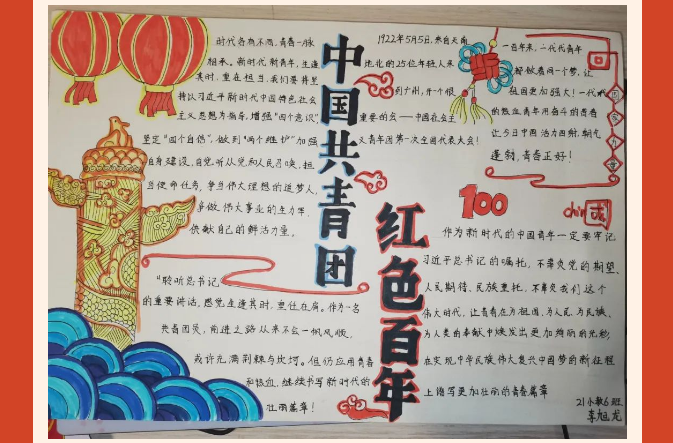 时代各有不同,青春一脉
相承。新时代新青年,生逢
其时,重在担当,我们要将坚
持以习近平新时代中国特色社会
主义思想为指导,增强“四个意识”
坚定“四个自信”,做到“两个维护”加强
自身建设,自觉听从党和人民召唤,担
当使命任务,争当伟大理想的追梦人,
争做伟大事业的生力军,
贡献自己的鲜活力量。
“聆听总书记
的重要讲话,感觉生逢其时,重任在肩。作为一名
共青团员,前进之路从来不会一帆风顺,
或许充满荆棘与坎坷。但仍应用青春
和热血,继续书写新时代的
壮丽篇章!
中国共青团
红色百年
1922年5月5日,来自天南
地北的25位年轻人来
到广州,开一个很
重要的会——中国社会主
义青年团第一次全国代表大会!
一百年来,一代代青年
都做着同一个梦,让
祖国更加强大!一代代
的热血青年用奋斗的青春
让今日中国活力四射,朝气
蓬勃,青春正好!
100
china
作为新时代的中国青年一定要牢记
习近平总书记的嘱托,不辜负党的期望、
人民期待、民族重托,不辜负我们这个
伟大时代,让青春在为祖国、为人民、为民族、
为人类的奉献中焕发出更加绚丽的光彩,
在实现中华民族伟大复兴中国梦的新征程
上谱写更加壮丽的青春篇章
21小教6班
李旭龙